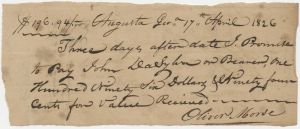 $196.94/100 Augusta Geo. 17th April 1826
Three days after date I Promise
to Pay John DaSylva or Bearer, One
Hundred Ninety Six Dollars & Ninety four
Cents for Value Recieved
Oliver Morse